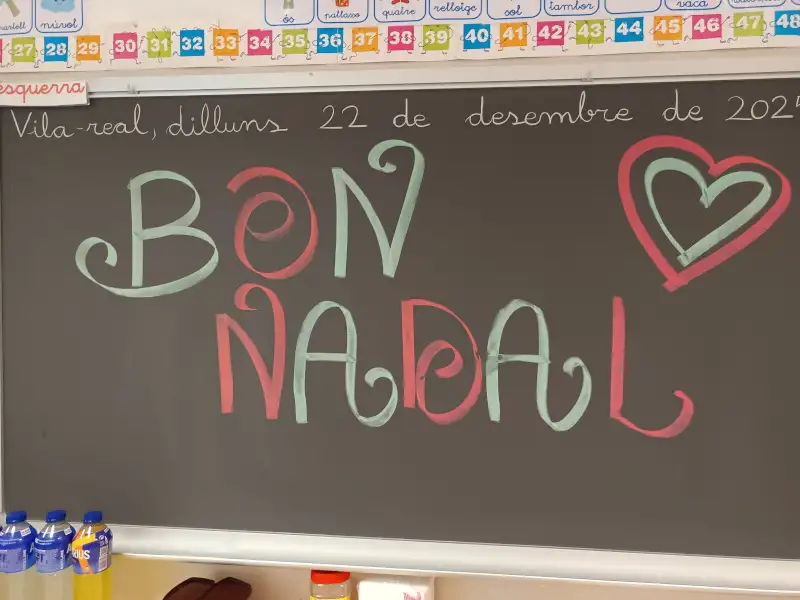 martell núvol ós pallasso quatre rellotge sol tambor vaca
27 28 29 30 31 32 33 34 35 36 37 38 39 40 41 42 43 44 45 46 47 48
esquerra
Vila-real, dilluns 22 de desembre de 2025
BON
NADAL